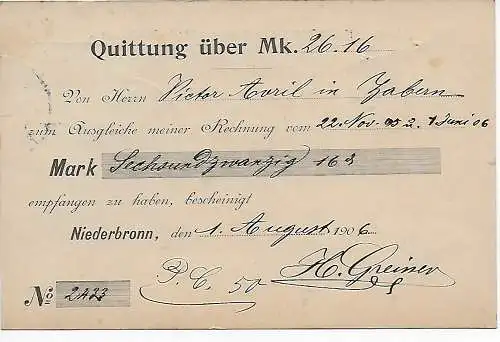 Quittung über Mk. 26.16
Von Herrn Victor Avril in Zabern
zum Ausgleiche meiner Rechnung vom 22. Nov. 05 2. 1 Juni 06
Mark Sechsundzwanzig 16 ₰
empfangen zu haben, bescheinigt
Niederbronn, den 1. August 1906
P. C. 50 H. Greiner
No 2433